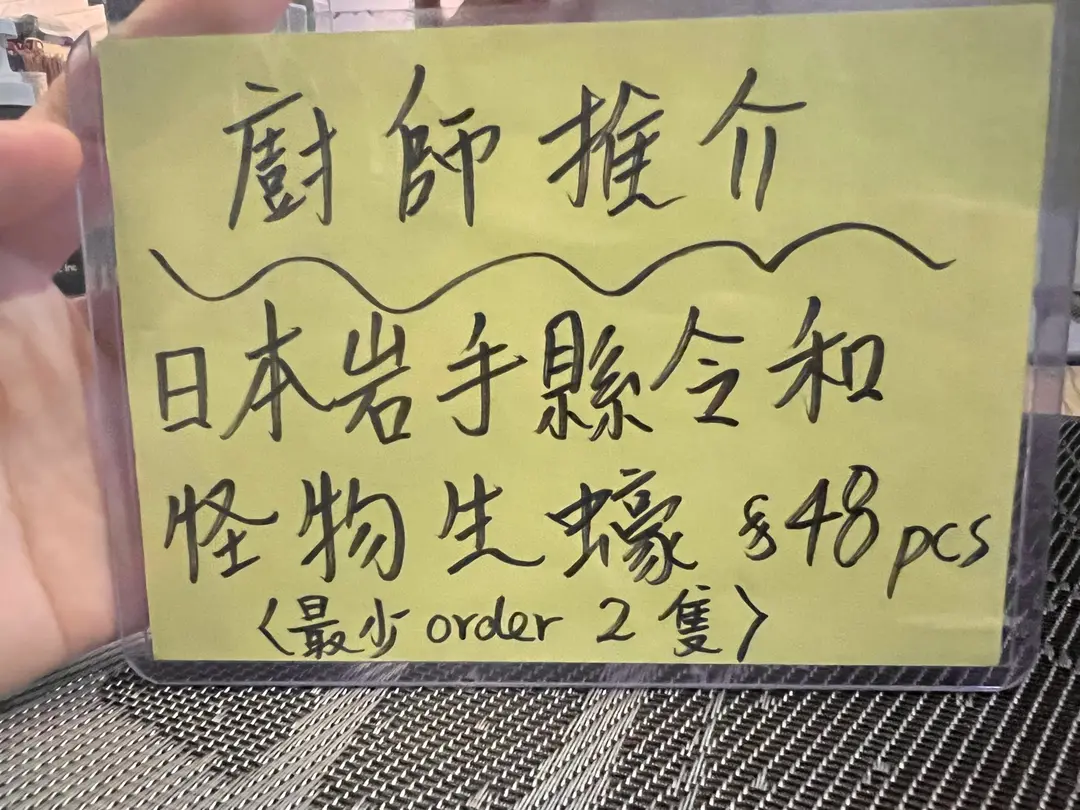 廚師推介
日本岩手縣令和
怪物生蠔 $48 pcs
〈最少 order 2 隻〉